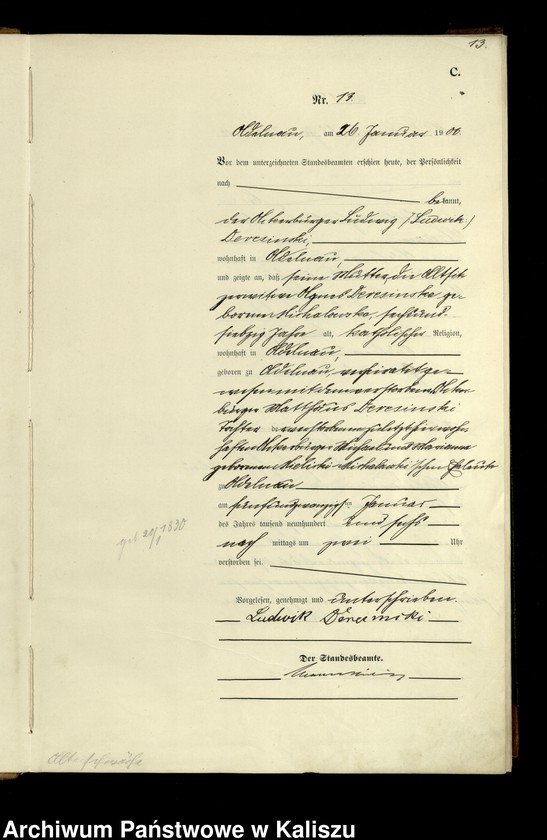 13.
C.
Nr. 13.
Adelnau, am 26 Januar 1906.
Vor dem unterzeichneten Standesbeamten erschien heute, der Persönlichkeit
nach
bekannt,
der Ackerbürger Ludwig /Ludwik/
Deresinski,
wohnhaft in Adelnau,
und zeigte an, daß seine Mutter, die Altsitzerwittwe
Agnes Deresinska geborene
Michalowska, sechsund
siebzig Jahre alt, katholischer Religion,
wohnhaft in Adelnau,
geboren zu Adelnau, verheiratet gewesen
mit dem verstorbenen Ackerbürger
Matthäus Deresinski
Tochter der verstorbenen zuletzt hier wohnhaften
Ackerbürger Michael und Marianna
geborenen
zu Adelnau
am fünfundzwanzigsten Januar
des Jahres tausend neunhundert und sechs
nach mittags um zwei Uhr
verstorben sei.
geb 20/1 1830
Vorgelesen, genehmigt und unterschrieben.
Ludwik Deresinski
Der Standesbeamte.
Altersschwäche
Archiwum Państwowe w Kaliszu